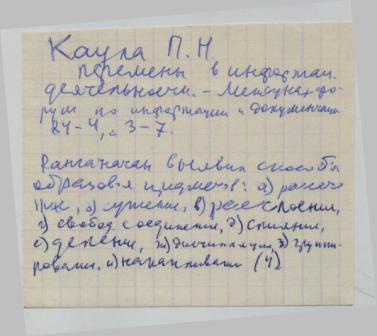 Каула П. Н.
перемены в информац.
деятельности. – Междунар. фо-
рум по информации и документации
24–4, с 3–7.
Ранганатан выявил способы
образов-я предметов: а)
б) сужение, в) расслоение,
г) свобод. соединение, д) слияние,
е) деление, ж) дистилляция, з) группи-
рование, и) накапливание (4)